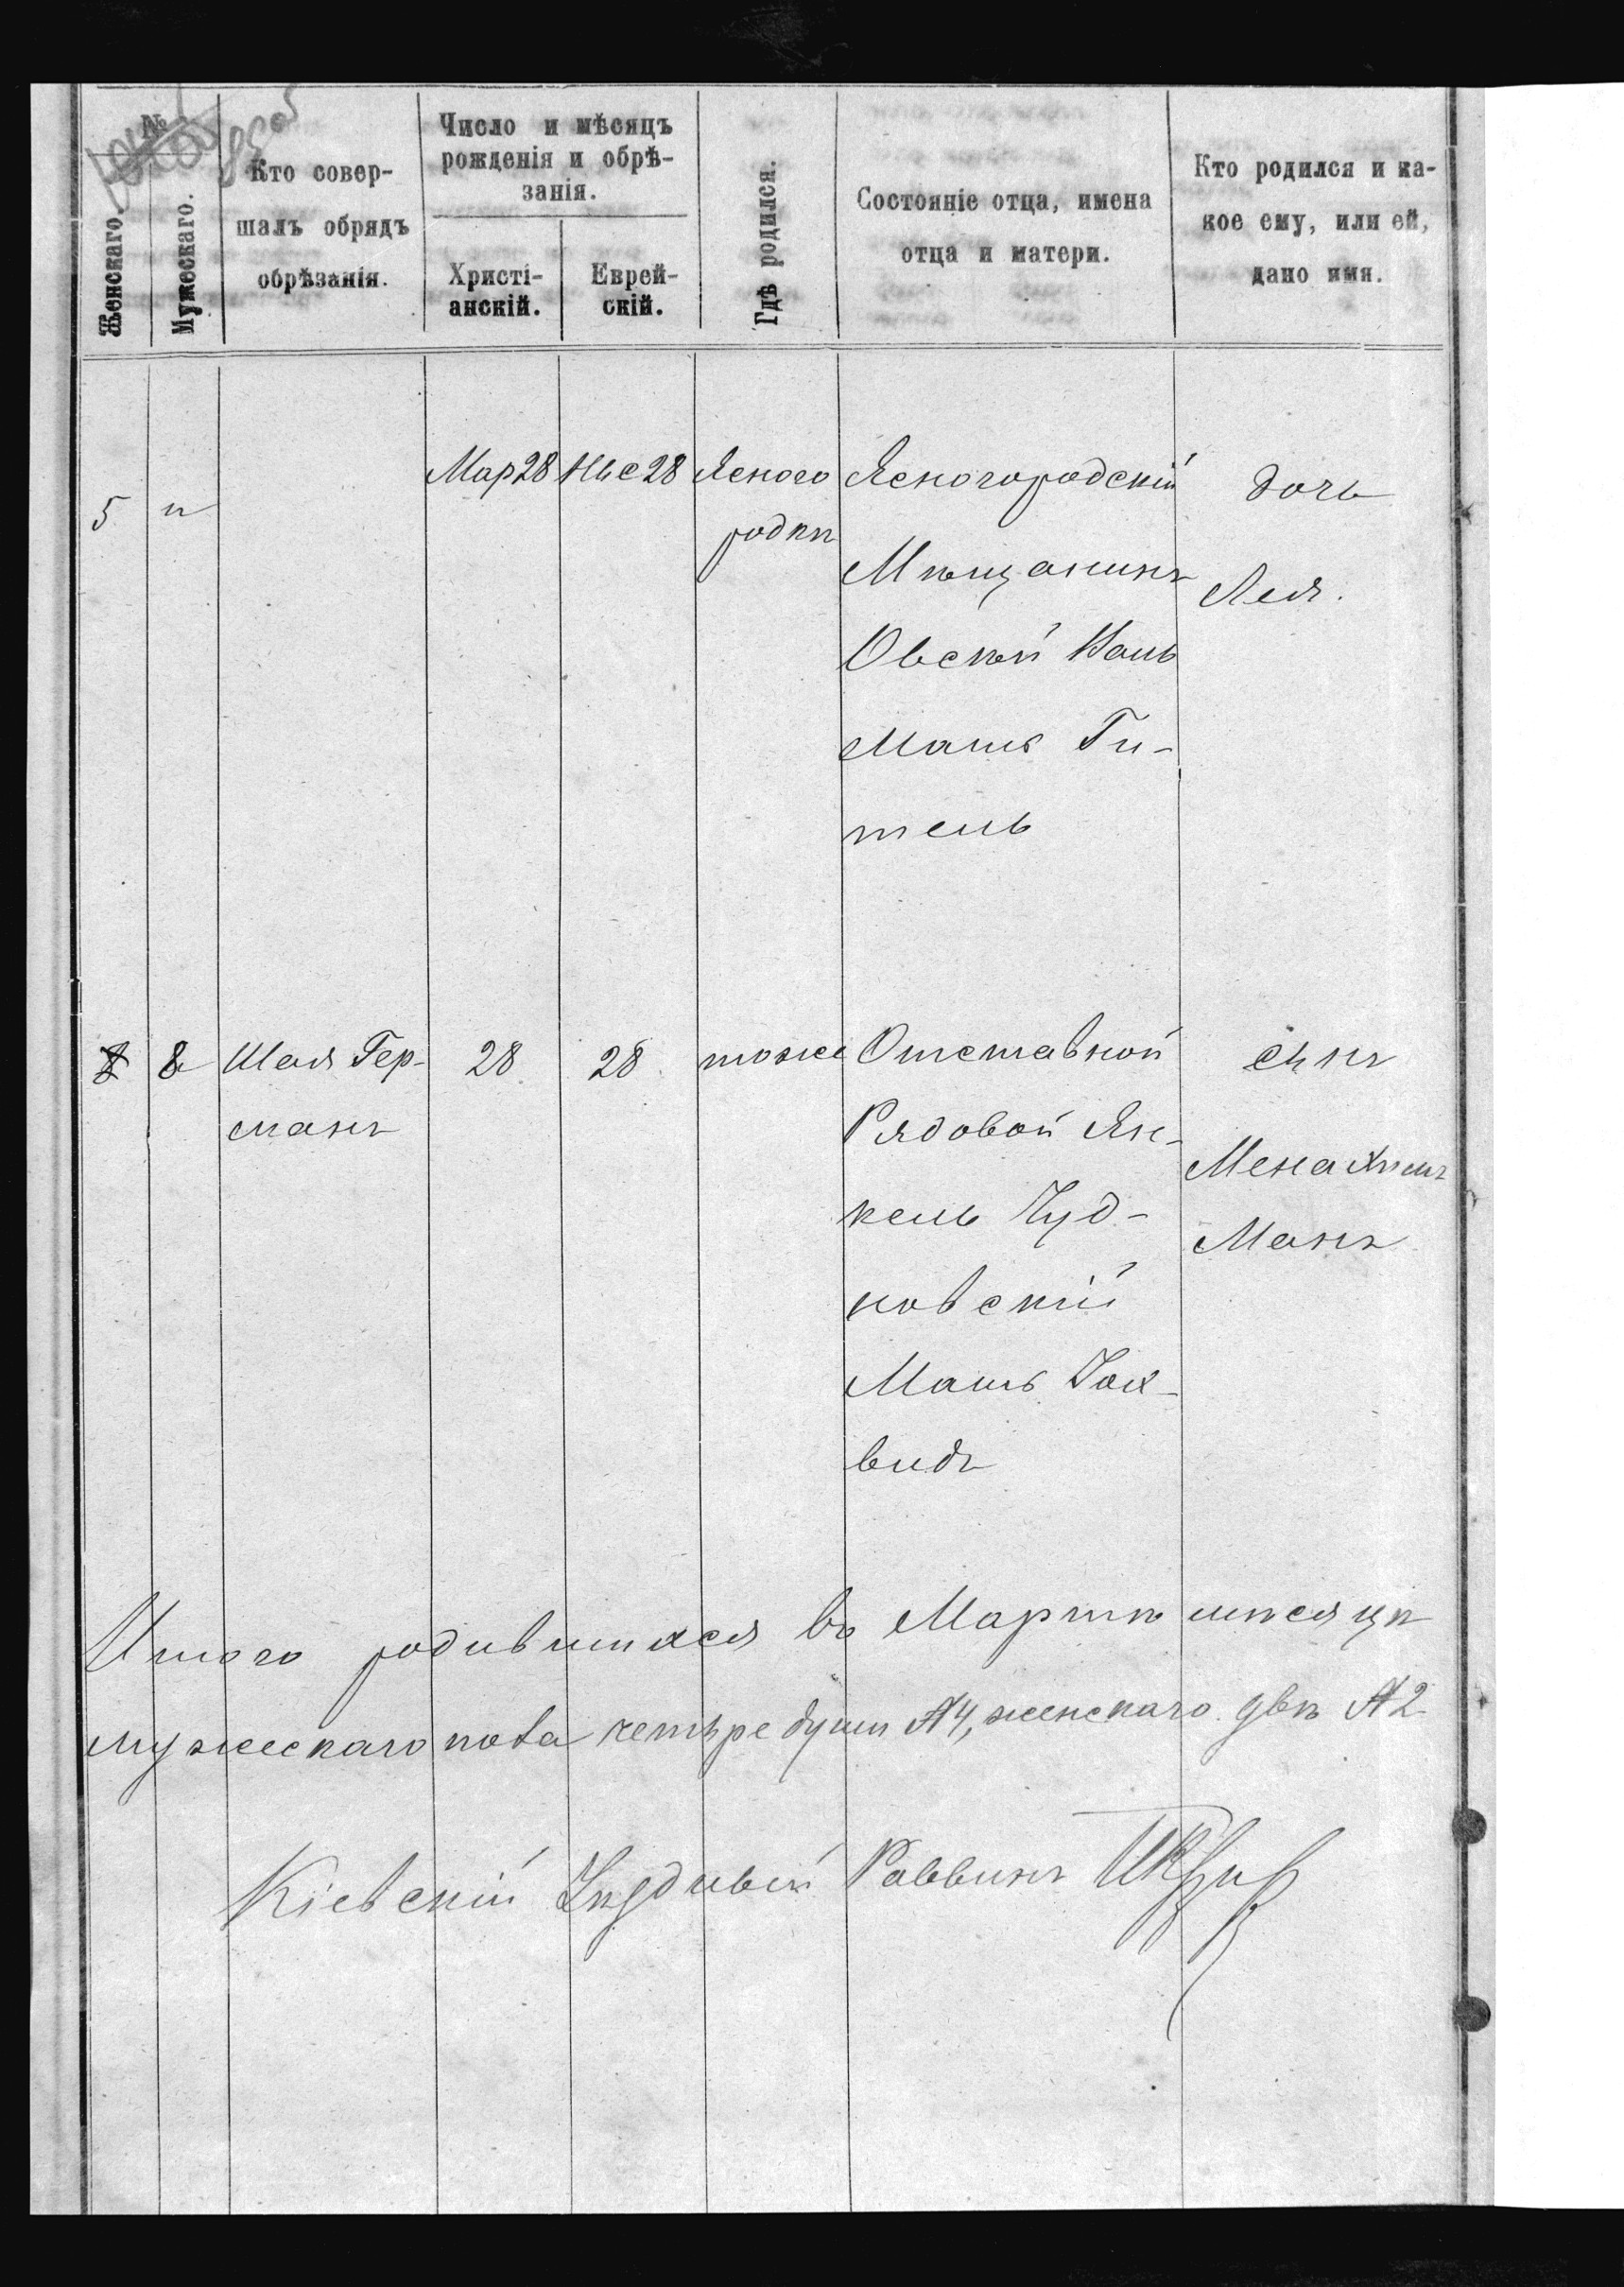 №
Женскаго.
Мужескаго.
Кто совер-
шалъ обрядъ
обрѣзанія.
Число и мѣсяцъ
рожденія и обрѣ-
занія.
Христі-
анскій.
Еврей-
скій.
Гдѣ родился.
Состояніе отца, имена
отца и матери.
Кто родился и ка-
кое ему, или ей,
дано имя.
5
Мар 28
Нис 28
Ясного
родкѣ
Ясногородскій
Мѣщанинъ
Овскій
Мать Ги-
тель
дочь
Лея.
8
Шая Гер-
манъ
28
28
тоже
Отставной
Рядовой Ян-
кель Чуд-
новскій
Мать Іох-
видъ
сынъ
Менахимъ
Манъ
Итого родившихся въ Мартѣ мѣсяцѣ
мужескаго пола четыре души №4, женскаго двѣ №2
Кіевскій Уѣздный Раввинъ